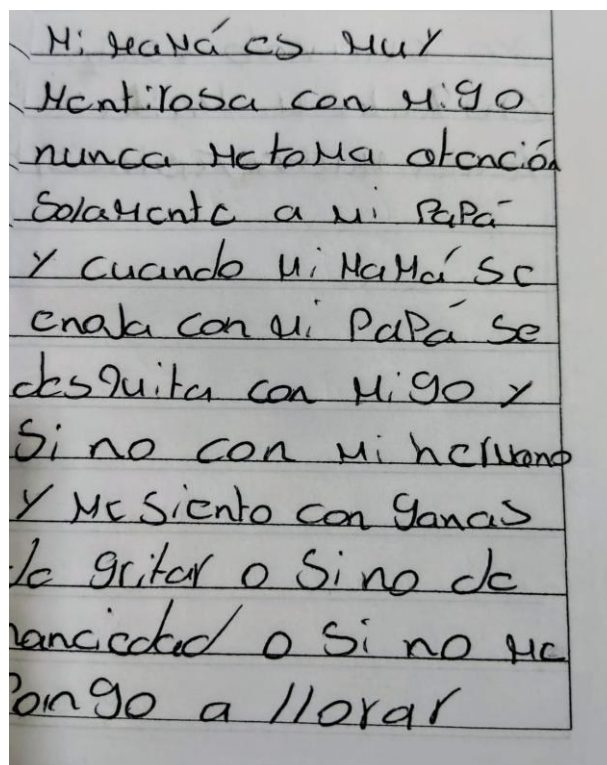 Mi mamá es muy
mentirosa con migo
nunca me toma atención
solamente a mi papá
y cuando mi mamá se
enoja con mi papá se
desquita con migo y
si no con mi hermano
y me siento con ganas
de gritar o si no de
hanciedad o si no me
pongo a llorar